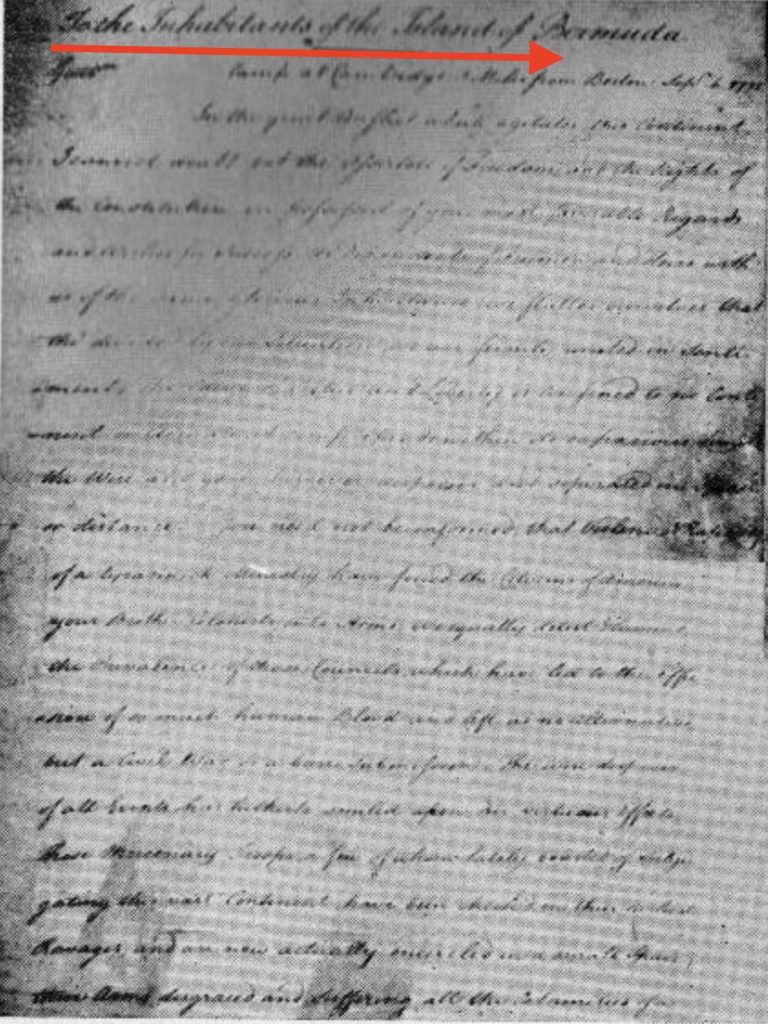 To the Inhabitants of the Island of Bermuda
Gentn
Camp at Cambridge 3 Miles from Boston Sept. 6. 1775
In the great Conflict which agitates this Continent
I cannot doubt but the Assertors of Freedom and the Rights of
the Constitution are possessed of your most favorable Regards
and Wishes for Success. As Descendents of Freemen and Heirs with
us of the same glorious Inheritance we flatter ourselves that
tho divided by our Situation we are firmly united in Senti
ments. The Cause of Virtue and Liberty is confined to no Conti
nent or Climate it comprehends within its capacious Limits
the Wise and good however dispersed and separated in Space
or distance. You need not be informed that Violence & Rapacity
of a tyrannick Ministry have forced the Citizens of America
your Brother Colonists into Arms. We equally detest & lament
the Prevalence of those Councils which have led to the Effu
sion of so much human Blood and left us no alternative
but a Civil War or a base Submission. The wise disposer
of all Events has hitherto smiled upon our virtuous Efforts
those Mercenary Troops a few of whom lately boasted of Subju
gating this vast Continent have been checked in their earliest
Ravages and are now actually encircled in a small Space
their Arms disgraced and Suffering all the Calamities of a